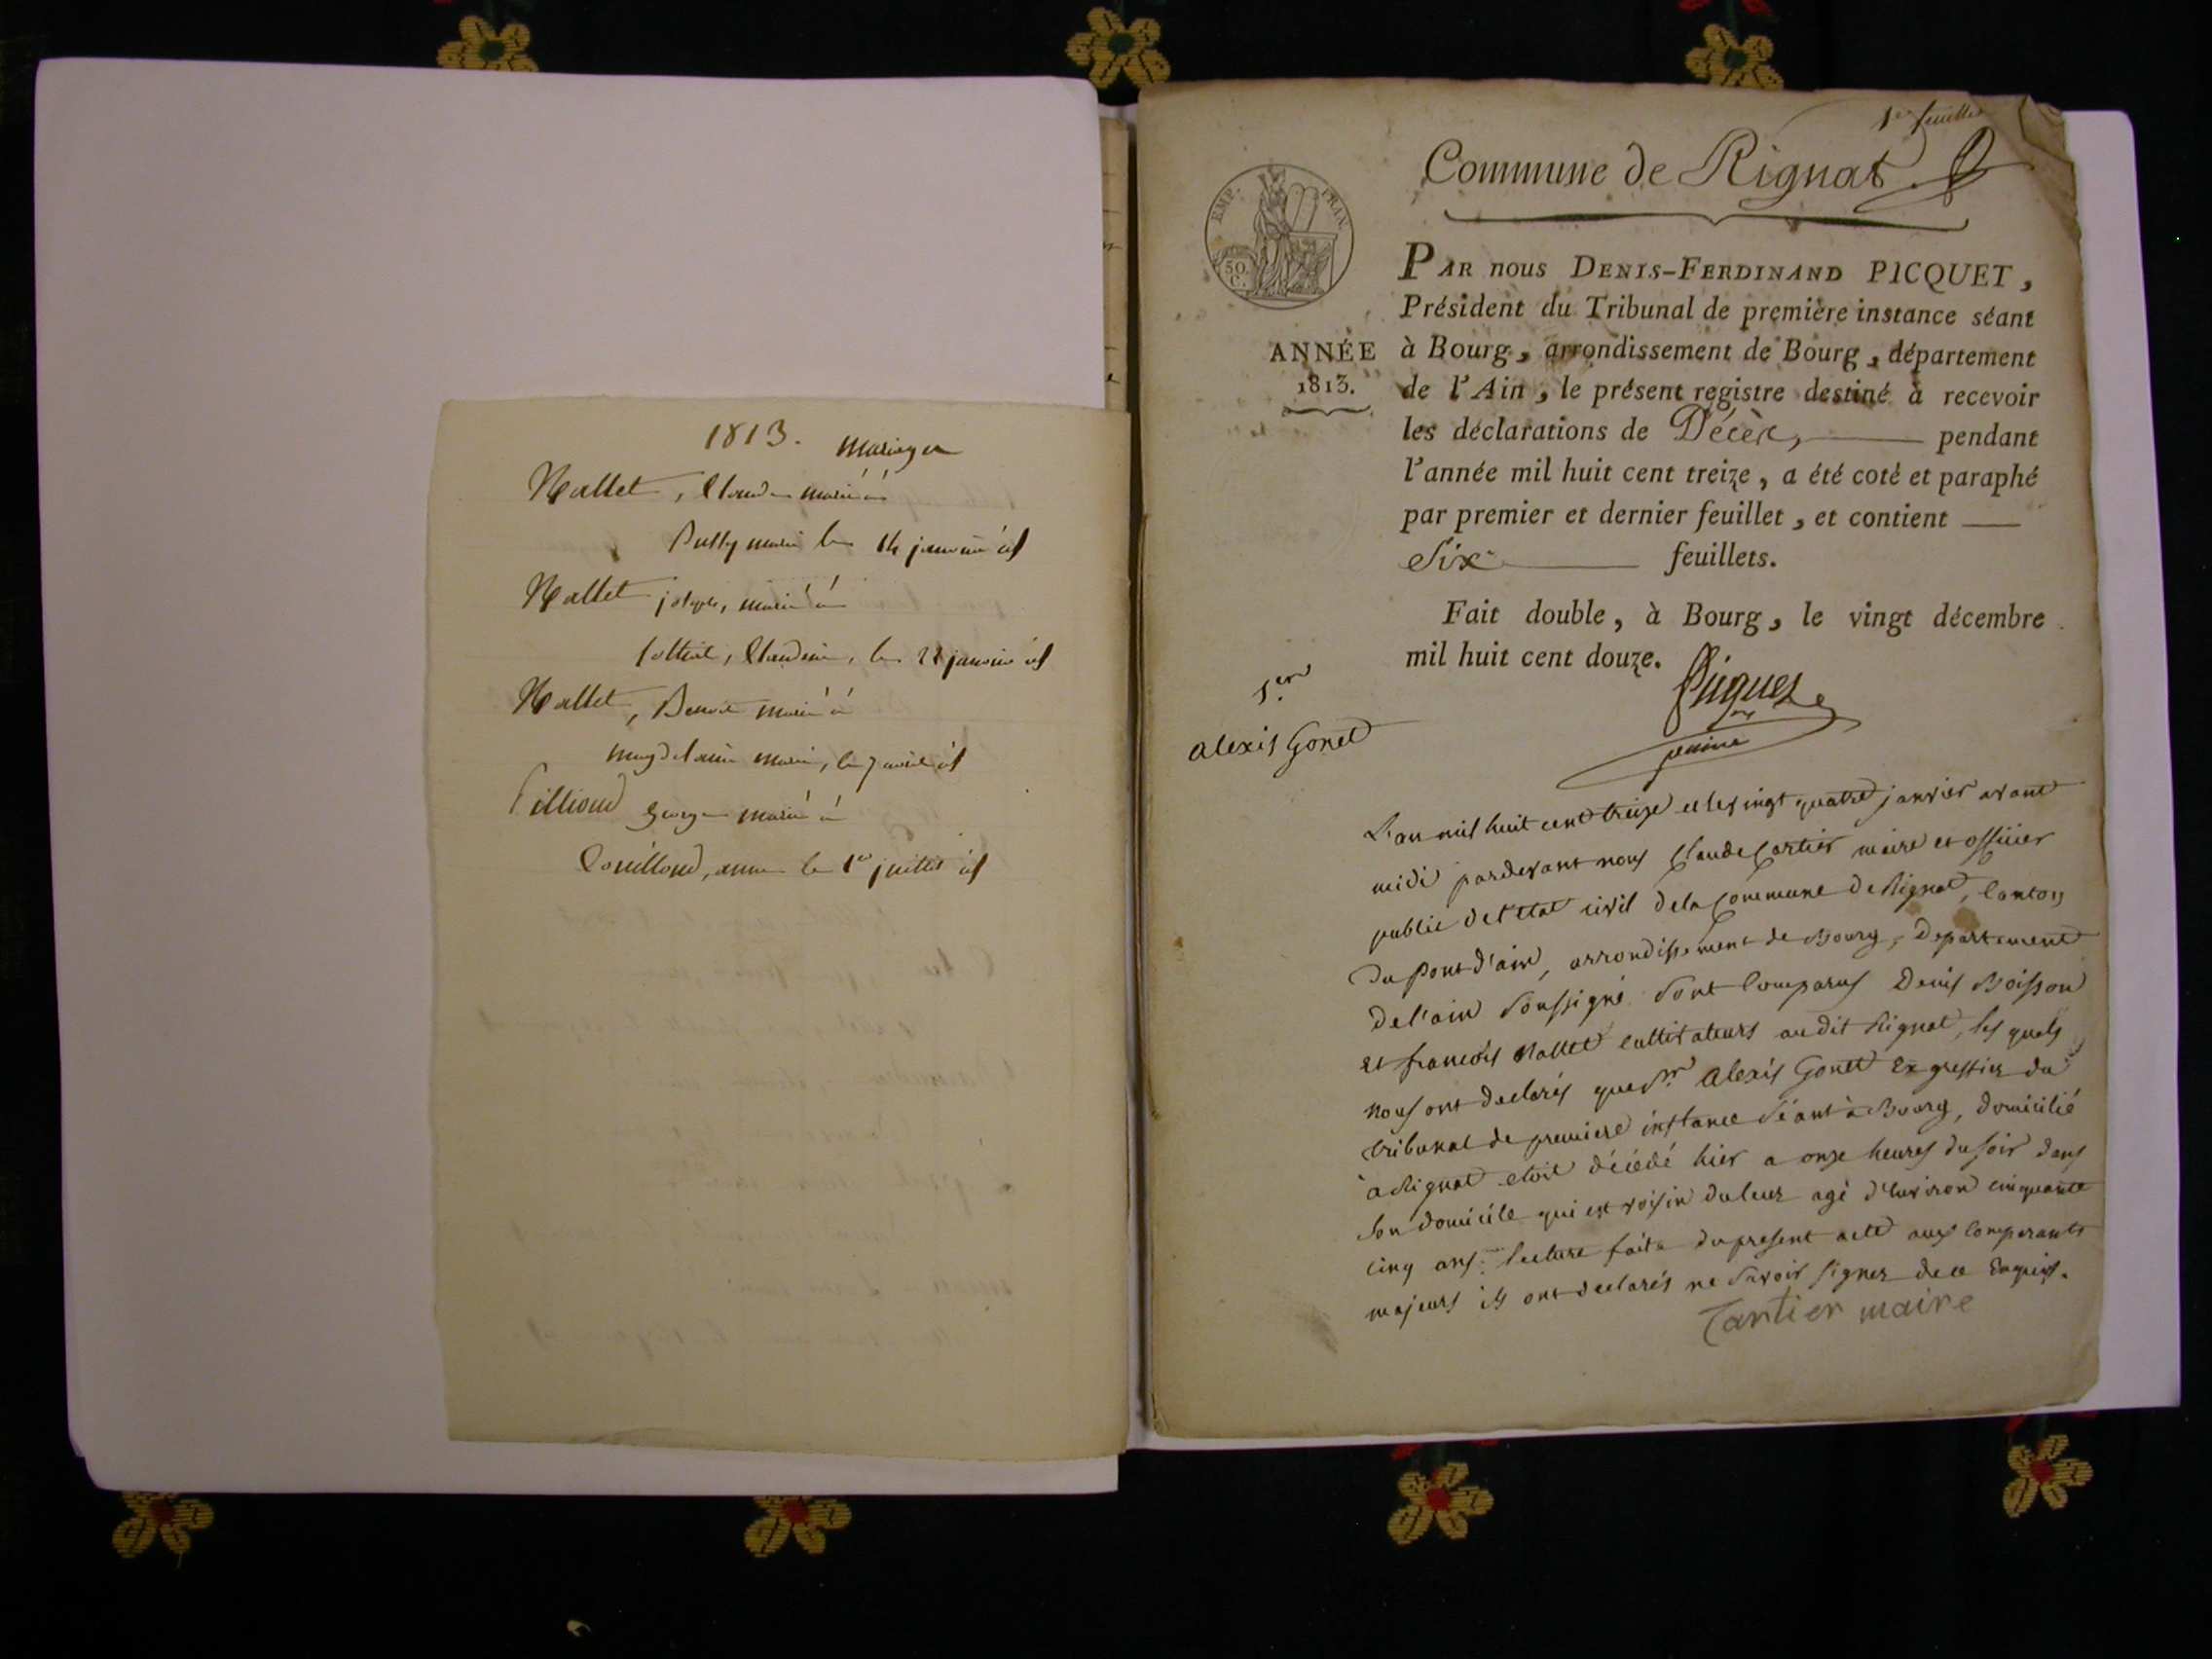 1813. mariages
Mallet, Claude marié à
marie le 14 janvier
Mallet joseph, marié à
Claudine, le 28 janvier
Mallet, Benoit marié à
magdelaine marie, le 7 avril
george marié à
Couilloud, anne le 1er juillet
1er feuillet
Commune de Rignat.
EMP. FRAN.
50. C.
PAR nous DENIS-FERDINAND PICQUET,
Président du Tribunal de première instance séant
ANNÉE
1813.
à Bourg, arrondissement de Bourg, département
de l'Ain, le présent registre destiné à recevoir
les déclarations de Décès, pendant
l'année mil huit cent treize, a été coté et paraphé
par premier et dernier feuillet, et contient
Six feuillets.
Fait double, à Bourg, le vingt décembre
mil huit cent douze.
Picquet
1er
alexis Gonet
L'an mil huit cent treize et le vingt quatre janvier avant
midi pardevant nous Claude Cartier maire et officier
public de l'état civil de la Commune de Rignat, Canton
du Pont d'ain, arrondissement de Bourg, Departement
de l'ain Soussigné Sont Comparus Denis Boisson
et francois Mallet cultivateurs audit Rignat, les quels
nous ont declarés que Sr. Alexis Gonet Ex greffier du
tribunal de premiere instance Séant à Bourg, domicilié
a Rignat etoit décédé hier a onze heures du soir dans
Son domicile qui est voisin du leur agé d'Environ cinquante
cinq ans. lecture faite du present acte aux Comparants
majeurs ils ont declarés ne Savoir signer de ce Enquis.
Cartier maire